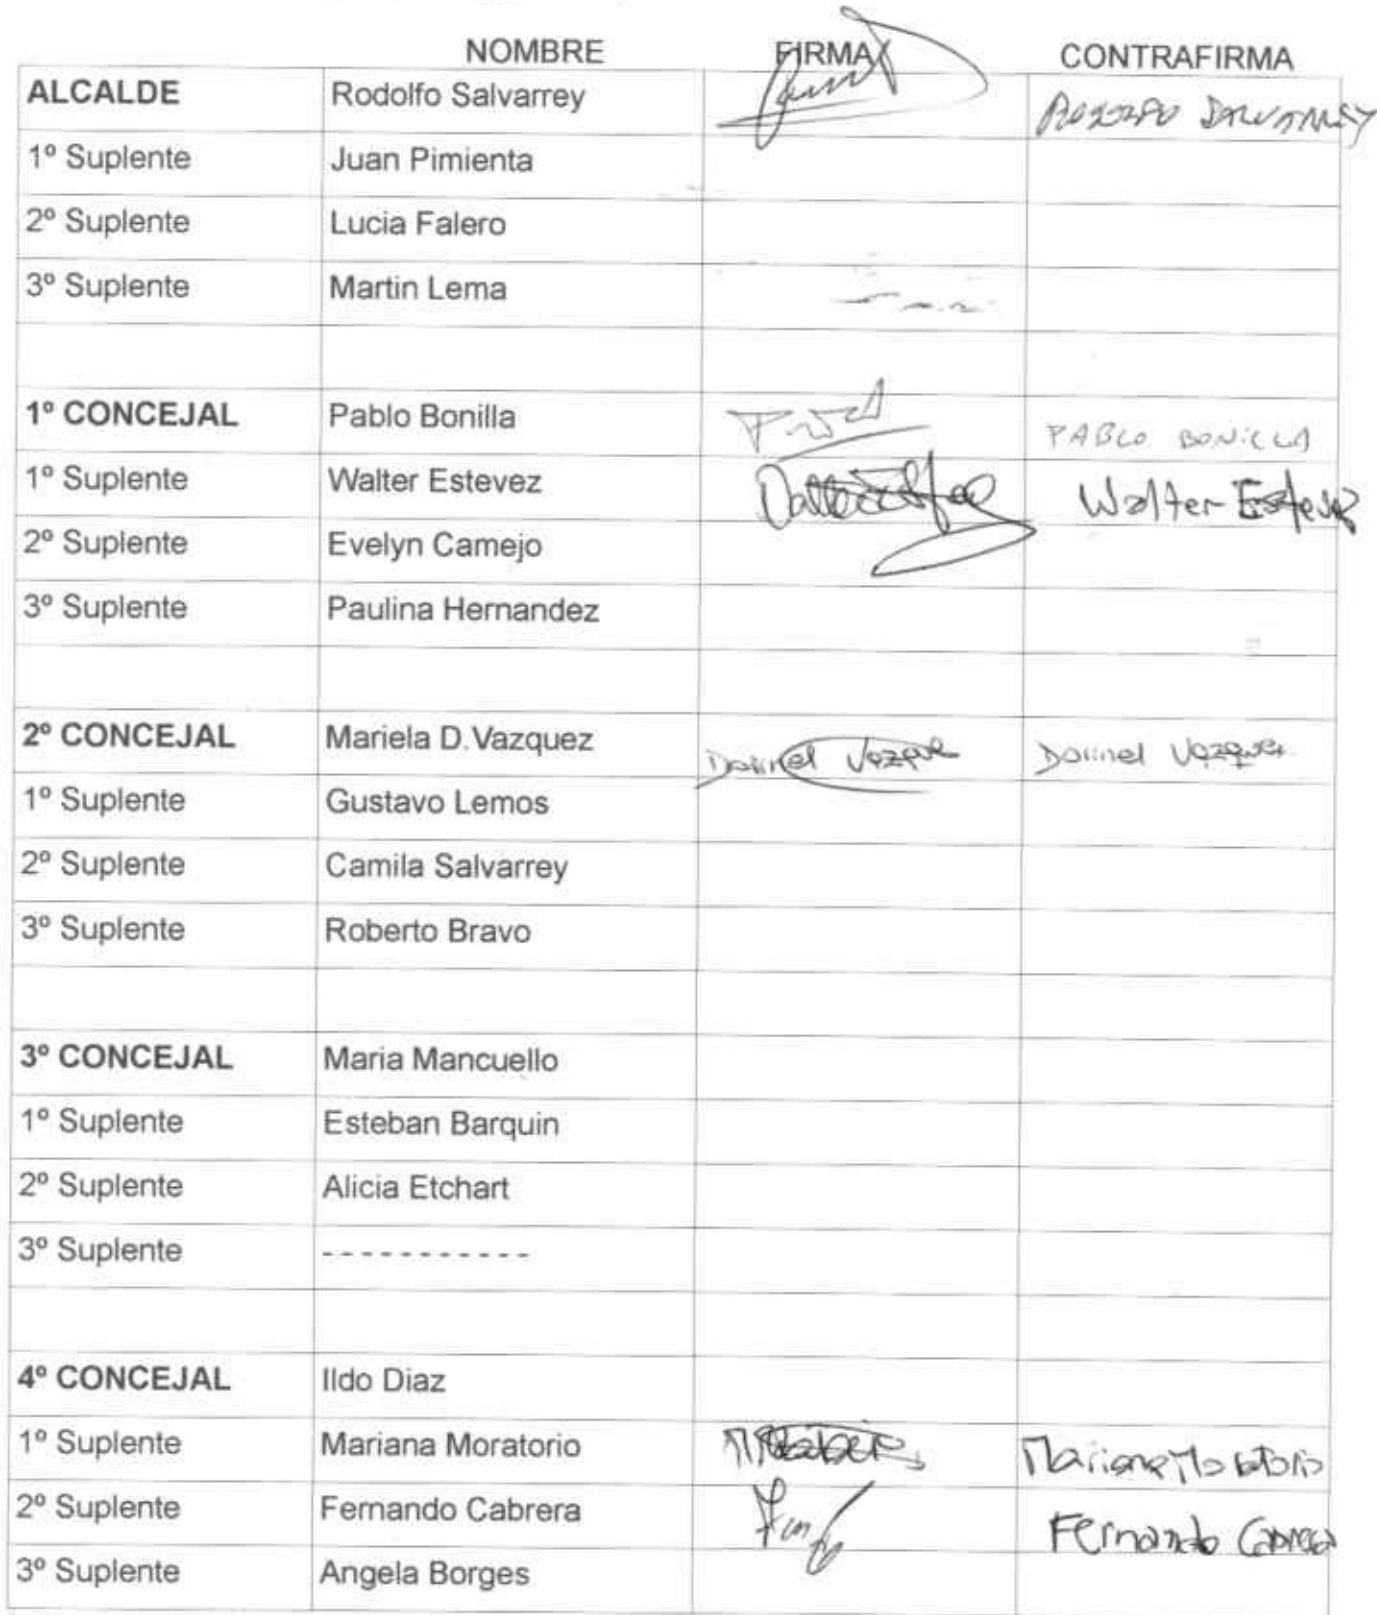 NOMBRE FIRMA CONTRAFIRMA
ALCALDE Rodolfo Salvarrey RODOLFO SALVARREY
1º Suplente Juan Pimienta
2º Suplente Lucia Falero
3º Suplente Martin Lema
1º CONCEJAL Pablo Bonilla PABLO BONILLA
1º Suplente Walter Estevez Walter Estevez
2º Suplente Evelyn Camejo
3º Suplente Paulina Hernandez
2º CONCEJAL Mariela D.Vazquez Dorinel Vazquez
1º Suplente Gustavo Lemos
2º Suplente Camila Salvarrey
3º Suplente Roberto Bravo
3º CONCEJAL Maria Mancuello
1º Suplente Esteban Barquin
2º Suplente Alicia Etchart
3º Suplente -----------
4º CONCEJAL Ildo Diaz
1º Suplente Mariana Moratorio Mariana Moratorio
2º Suplente Fernando Cabrera Fernando Cabrera
3º Suplente Angela Borges